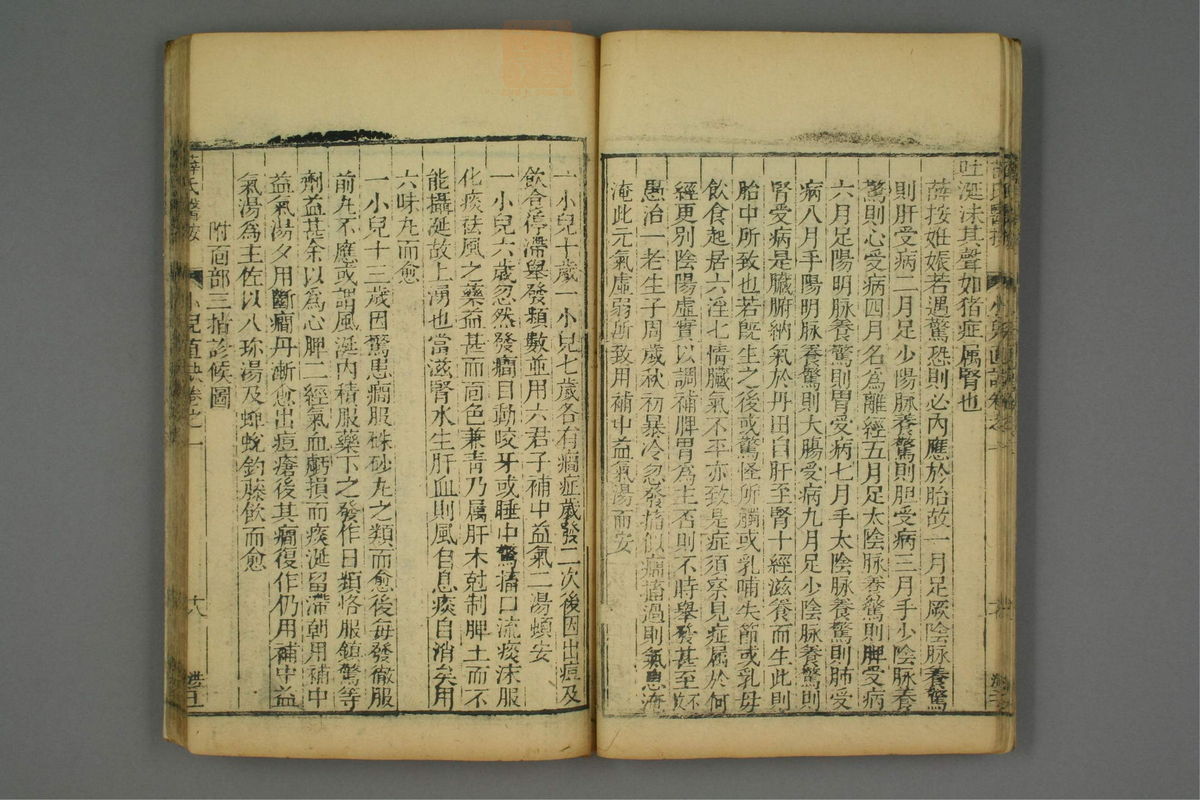 吐涎沫其聲如猪症属腎也
薛按姙娠若遇驚恐則必內應於胎故一月足厥陰脉養驚
則肝受病二月足少陽脉養驚則胆受病三月手少陰脉養
驚則心受病四月名爲離經五月足太陰脉養驚則脾受病
六月足陽明脉養驚則胃受病七月手太陰脉養驚則肺受
病八月手陽明脉養驚則大腸受病九月足少陰脉養驚則
腎受病是臟腑納氣於丹田自肝至腎十經滋養而生此則
胎中所致也若旣生之後或驚怪所觸或乳哺失節或乳母
飲食起居六淫七情臟氣不平亦致是症須察見症属於何
經更別陰陽虛實以調補脾胃爲主否則不時舉發甚至不
愚治一老生子周歲秋初暴冷忽發搐似癇搐過則氣息淹
淹此元氣虛弱所致用補中益氣湯而安
一小兒十歲一小兒七歲各有癇症歲發二次後因出痘及
飲食停滯舉發頻數並用六君子補中益氣二湯頓安
一小兒六歲忽然發癇目動咬牙或睡中驚搐口流痰沫服
化痰祛風之藥益甚而面色兼青乃屬肝木尅制脾土而不
能攝涎故上湧也當滋腎水生肝血則風自息痰自消矣用
六味丸而愈
一小兒十三歲因驚患癇服硃砂丸之類而愈後每發徹服
前丸不應或謂風涎內積服藥下之發作日頻恪服鎮驚等
劑益甚余以爲心脾二經氣血虧損而痰涎留滯朝用補中
益氣湯夕用斷癇丹漸愈出痘瘡後其癇復作仍用補中益
氣湯爲主佐以八珍湯及蟬蛻釣藤飲而愈
附面部三指診候圖
薛氏醫按
小兒直訣卷之一
十八